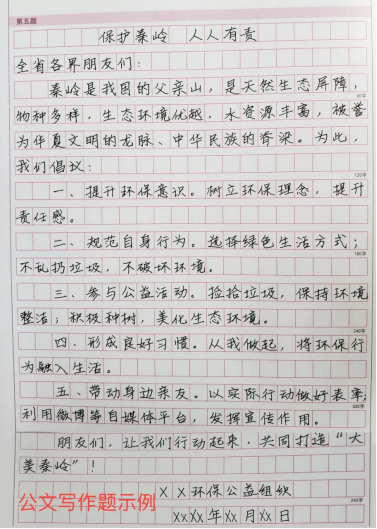 第五题
保护秦岭 人人有责
全省各界朋友们:
秦岭是我国的父亲山,是天然生态屏障,
物种多样,生态环境优越,水资源丰富,被誉
为华夏文明的龙脉、中华民族的脊梁。为此,
我们倡议:
一、提升环保意识。树立环保理念,提升
责任感。
二、规范自身行为。选择绿色生活方式;
不乱扔垃圾,不破坏环境。
三、参与公益活动。捡拾垃圾,保持环境
整洁;积极种树,美化生态环境。
四、形成良好习惯。从我做起,将环保行
为融入生活。
五、带动身边亲友。以实际行动做好表率;
利用微博等自媒体平台,发挥宣传作用。
朋友们,让我们行动起来,共同打造“大
美秦岭”!
XX环保公益组织
XXXX年XX月XX日
公文写作题示例